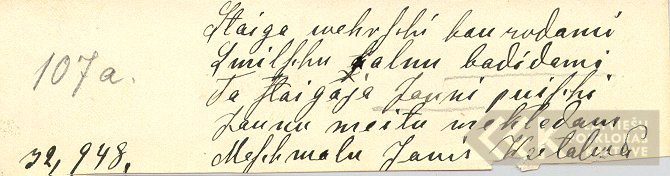 Staiga wehrschi baurodami
Smilschu kalnu badidami
107a.
Ta staigaja Jauni puischi
Jaunu meitu mekledami
32,948. Meschmalu Janis